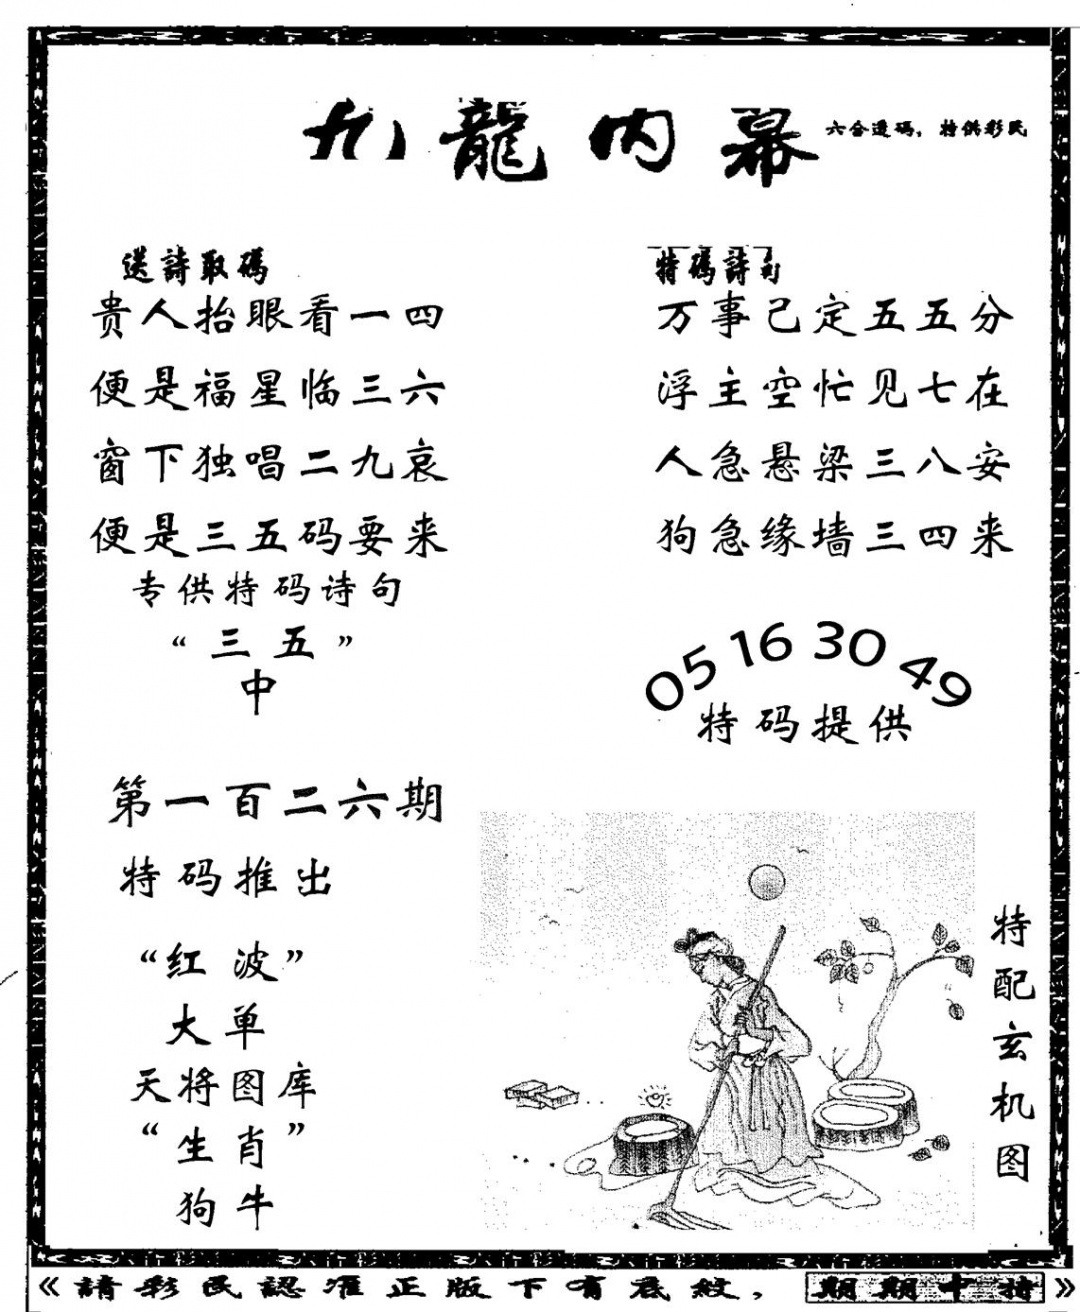 九龍内幕
六合透碼，特供彩民
送詩取碼
贵人抬眼看一四
便是福星临三六
窗下独唱二九哀
便是三五码要来
专供特码诗句
“三五”
中
特碼詩句
万事己定五五分
浮主空忙见七在
人急悬梁三八安
狗急缘墙三四来
05 16 30 49
特码提供
第一百二六期
特码推出
“红波”
大单
天将图库
“生肖”
狗牛
特配玄机图
《請彩民認准正版下有底紋，期期中特》